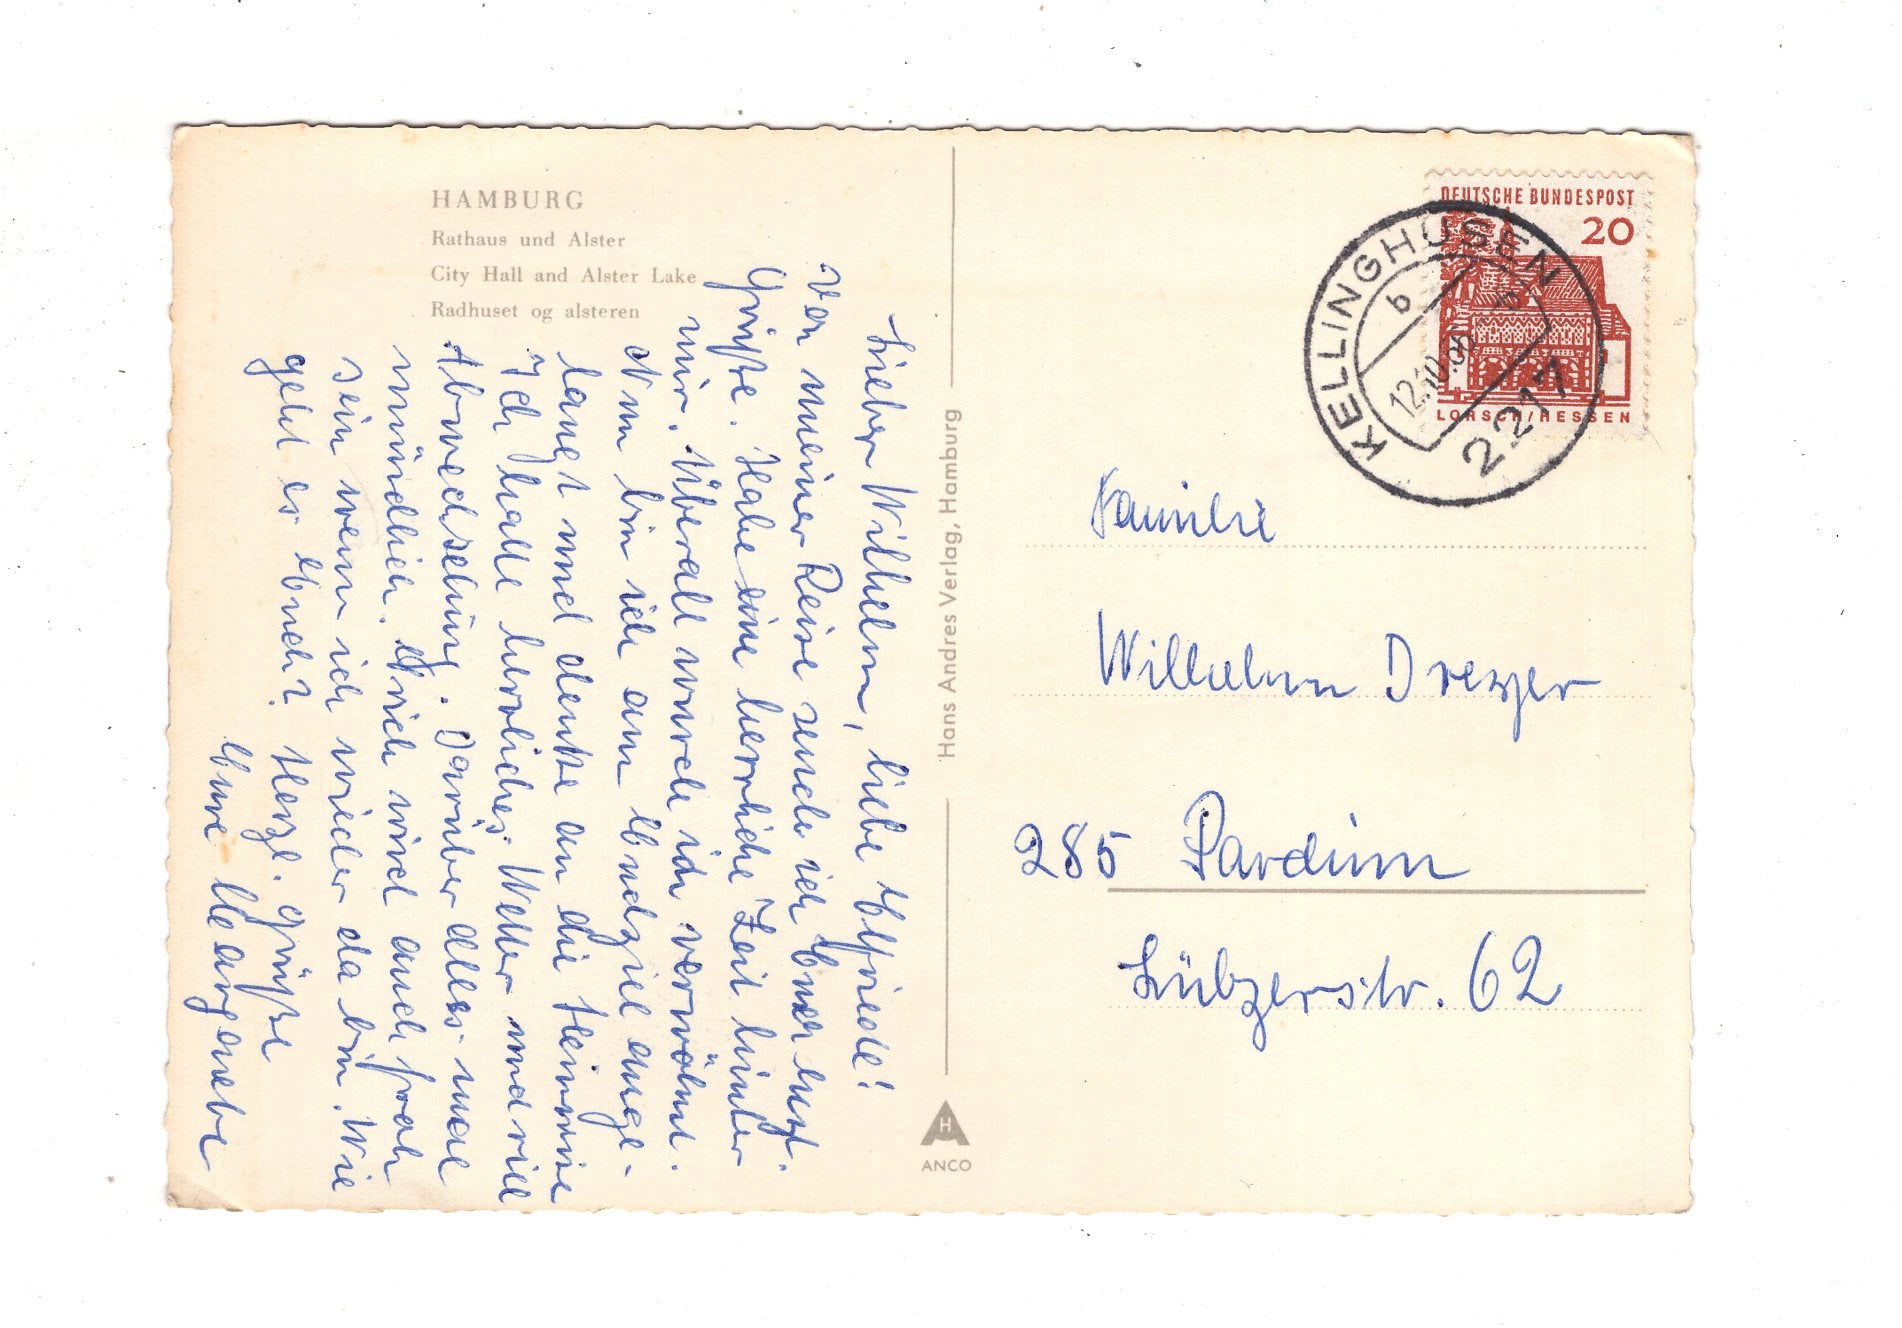 HAMBURG
Rathaus und Alster
City Hall and Alster Lake
Radhuset og alsteren
Lieber Wilhelm, liebe Elfriede!
Von meiner Reise sende ich Euch
Grüße. Habe eine herrliche Zeit hinter
mir. Überall wurde ich verwöhnt.
Nun bin ich am Endziel ange-
langt und denke an die Heimreise
Ich hatte herrliches Wetter und viel
Abwechselung. Darüber alles mal
mündlich. Erich wird auch froh
sein wenn ich wieder da bin. Wie
geht es Euch? Herzl. Grüße
Eure
Hans Andres Verlag, Hamburg
H
ANCO
DEUTSCHE BUNDESPOST
20
LORSCH/HESSEN
KELLINGHUSEN
b
12.10.66
2217
Familie
Wilhelm Dreyer
285 Pardim
Lübzerstr. 62